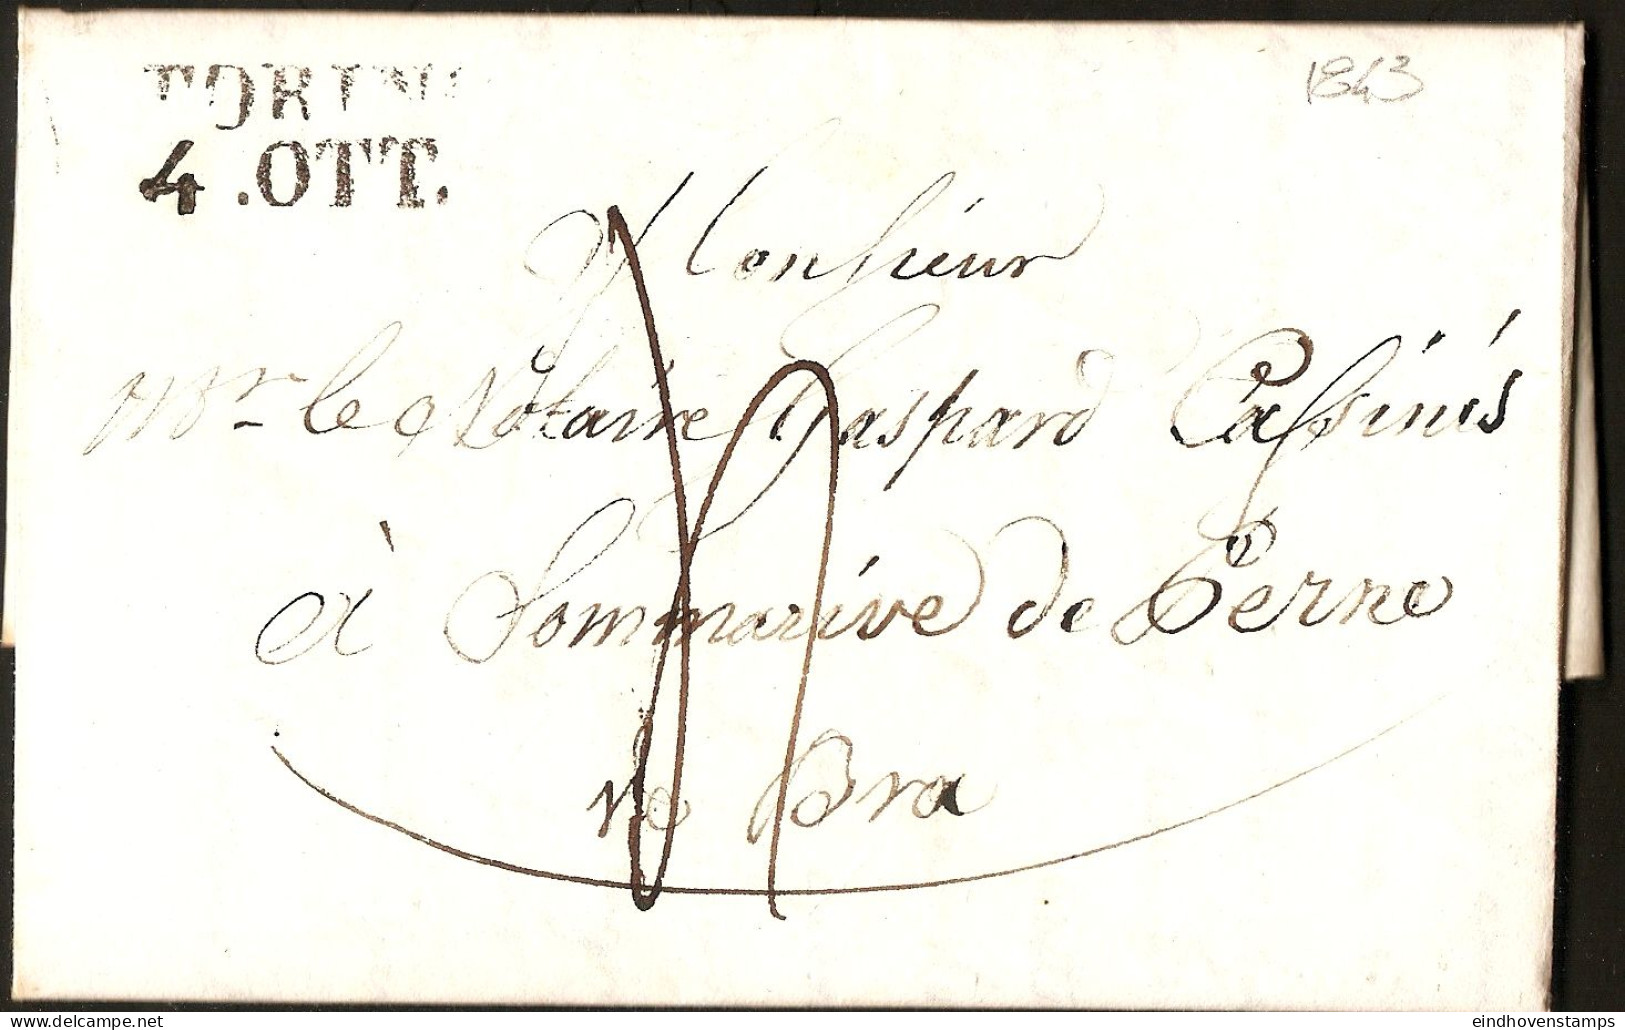 TORINO
4 .OTT.
1843
Monsieur
Mr. le Notaire Gaspard Cassinis
à Sommarive de Perno
Bra
eindhovenstamps
delcampe.net